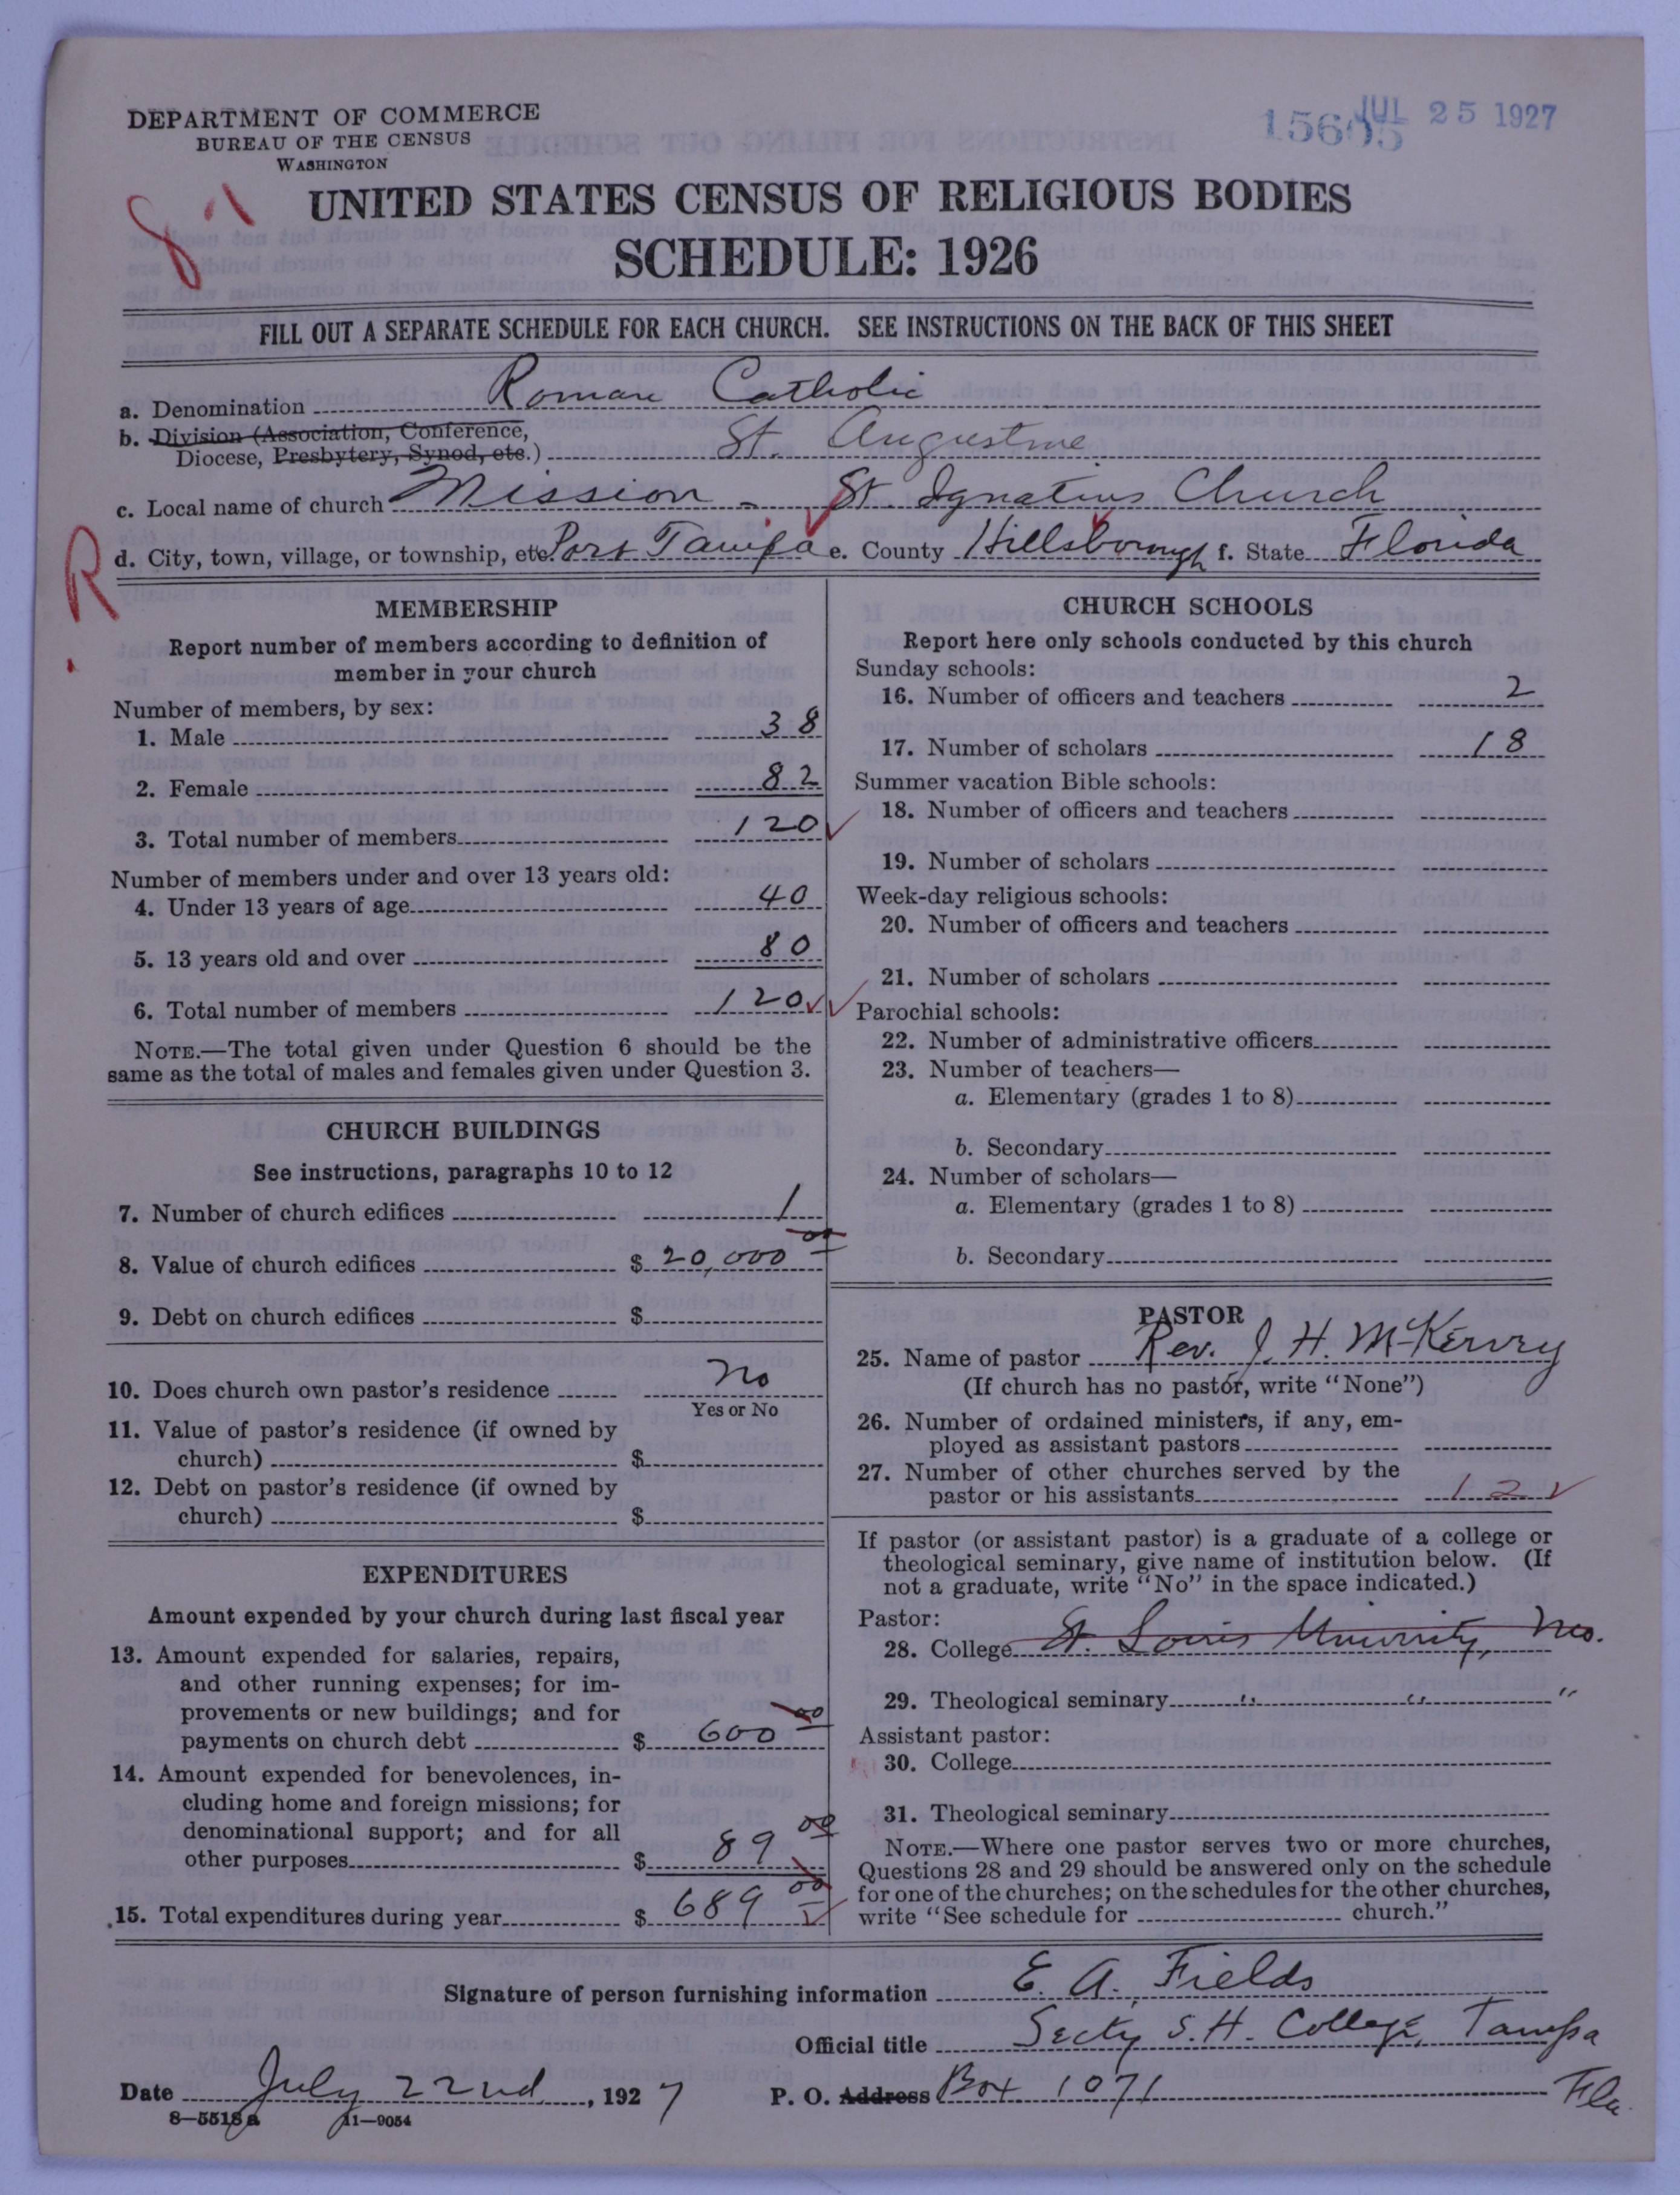 DEPARTMENT OF COMMERCE
BUREAU OF THE CENSUS
WASHINGTON
15605 JUL 25 1927
UNITED STATES CENSUS OF RELIGIOUS BODIES
SCHEDULE: 1926
FILL OUT A SEPARATE SCHEDULE FOR EACH CHURCH. SEE INSTRUCTIONS ON THE BACK OF THIS SHEET
a. Denomination Roman Catholic
b. Division (Association, Conference,
Diocese, Presbytery, Synod, etc.) St. Augustine
c. Local name of church Mission - St. Ignatius Church
R
d. City, town, village, or township, etc. Port Tampa e. County Hillsborough f. State Florida
MEMBERSHIP
Report number of members according to definition of
member in your church
Number of members, by sex:
1. Male 38
2. Female 82
3. Total number of members 120
Number of members under and over 13 years old:
4. Under 13 years of age 40
5. 13 years old and over 80
6. Total number of members 120
NOTE.—The total given under Question 6 should be the
same as the total of males and females given under Question 3.
CHURCH BUILDINGS
See instructions, paragraphs 10 to 12
7. Number of church edifices 1
8. Value of church edifices $ 20,000 00
9. Debt on church edifices $
10. Does church own pastor's residence No
Yes or No
11. Value of pastor's residence (if owned by
church) $
12. Debt on pastor's residence (if owned by
church) $
EXPENDITURES
Amount expended by your church during last fiscal year
13. Amount expended for salaries, repairs,
and other running expenses; for im-
provements or new buildings; and for
payments on church debt $ 600 00
14. Amount expended for benevolences, in-
cluding home and foreign missions; for
denominational support; and for all
other purposes $ 89 00
15. Total expenditures during year $ 689 00
CHURCH SCHOOLS
Report here only schools conducted by this church
Sunday schools:
16. Number of officers and teachers 2
17. Number of scholars 18
Summer vacation Bible schools:
18. Number of officers and teachers
19. Number of scholars
Week-day religious schools:
20. Number of officers and teachers
21. Number of scholars
Parochial schools:
22. Number of administrative officers
23. Number of teachers—
a. Elementary (grades 1 to 8)
b. Secondary
24. Number of scholars—
a. Elementary (grades 1 to 8)
b. Secondary
PASTOR
25. Name of pastor Rev. J. H. McKervry
(If church has no pastor, write "None")
26. Number of ordained ministers, if any, em-
ployed as assistant pastors
27. Number of other churches served by the
pastor or his assistants 12
If pastor (or assistant pastor) is a graduate of a college or
theological seminary, give name of institution below. (If
not a graduate, write "No" in the space indicated.)
Pastor:
28. College St. Louis University, Mo.
29. Theological seminary " " "
Assistant pastor:
30. College
31. Theological seminary
NOTE.—Where one pastor serves two or more churches,
Questions 28 and 29 should be answered only on the schedule
for one of the churches; on the schedules for the other churches,
write "See schedule for church."
Signature of person furnishing information E. A. Fields
Official title Secty S. H. College, Tampa
Date July 22nd, 1927 P. O. Address Box 1071 Fla.
8—5518 a 11—9054